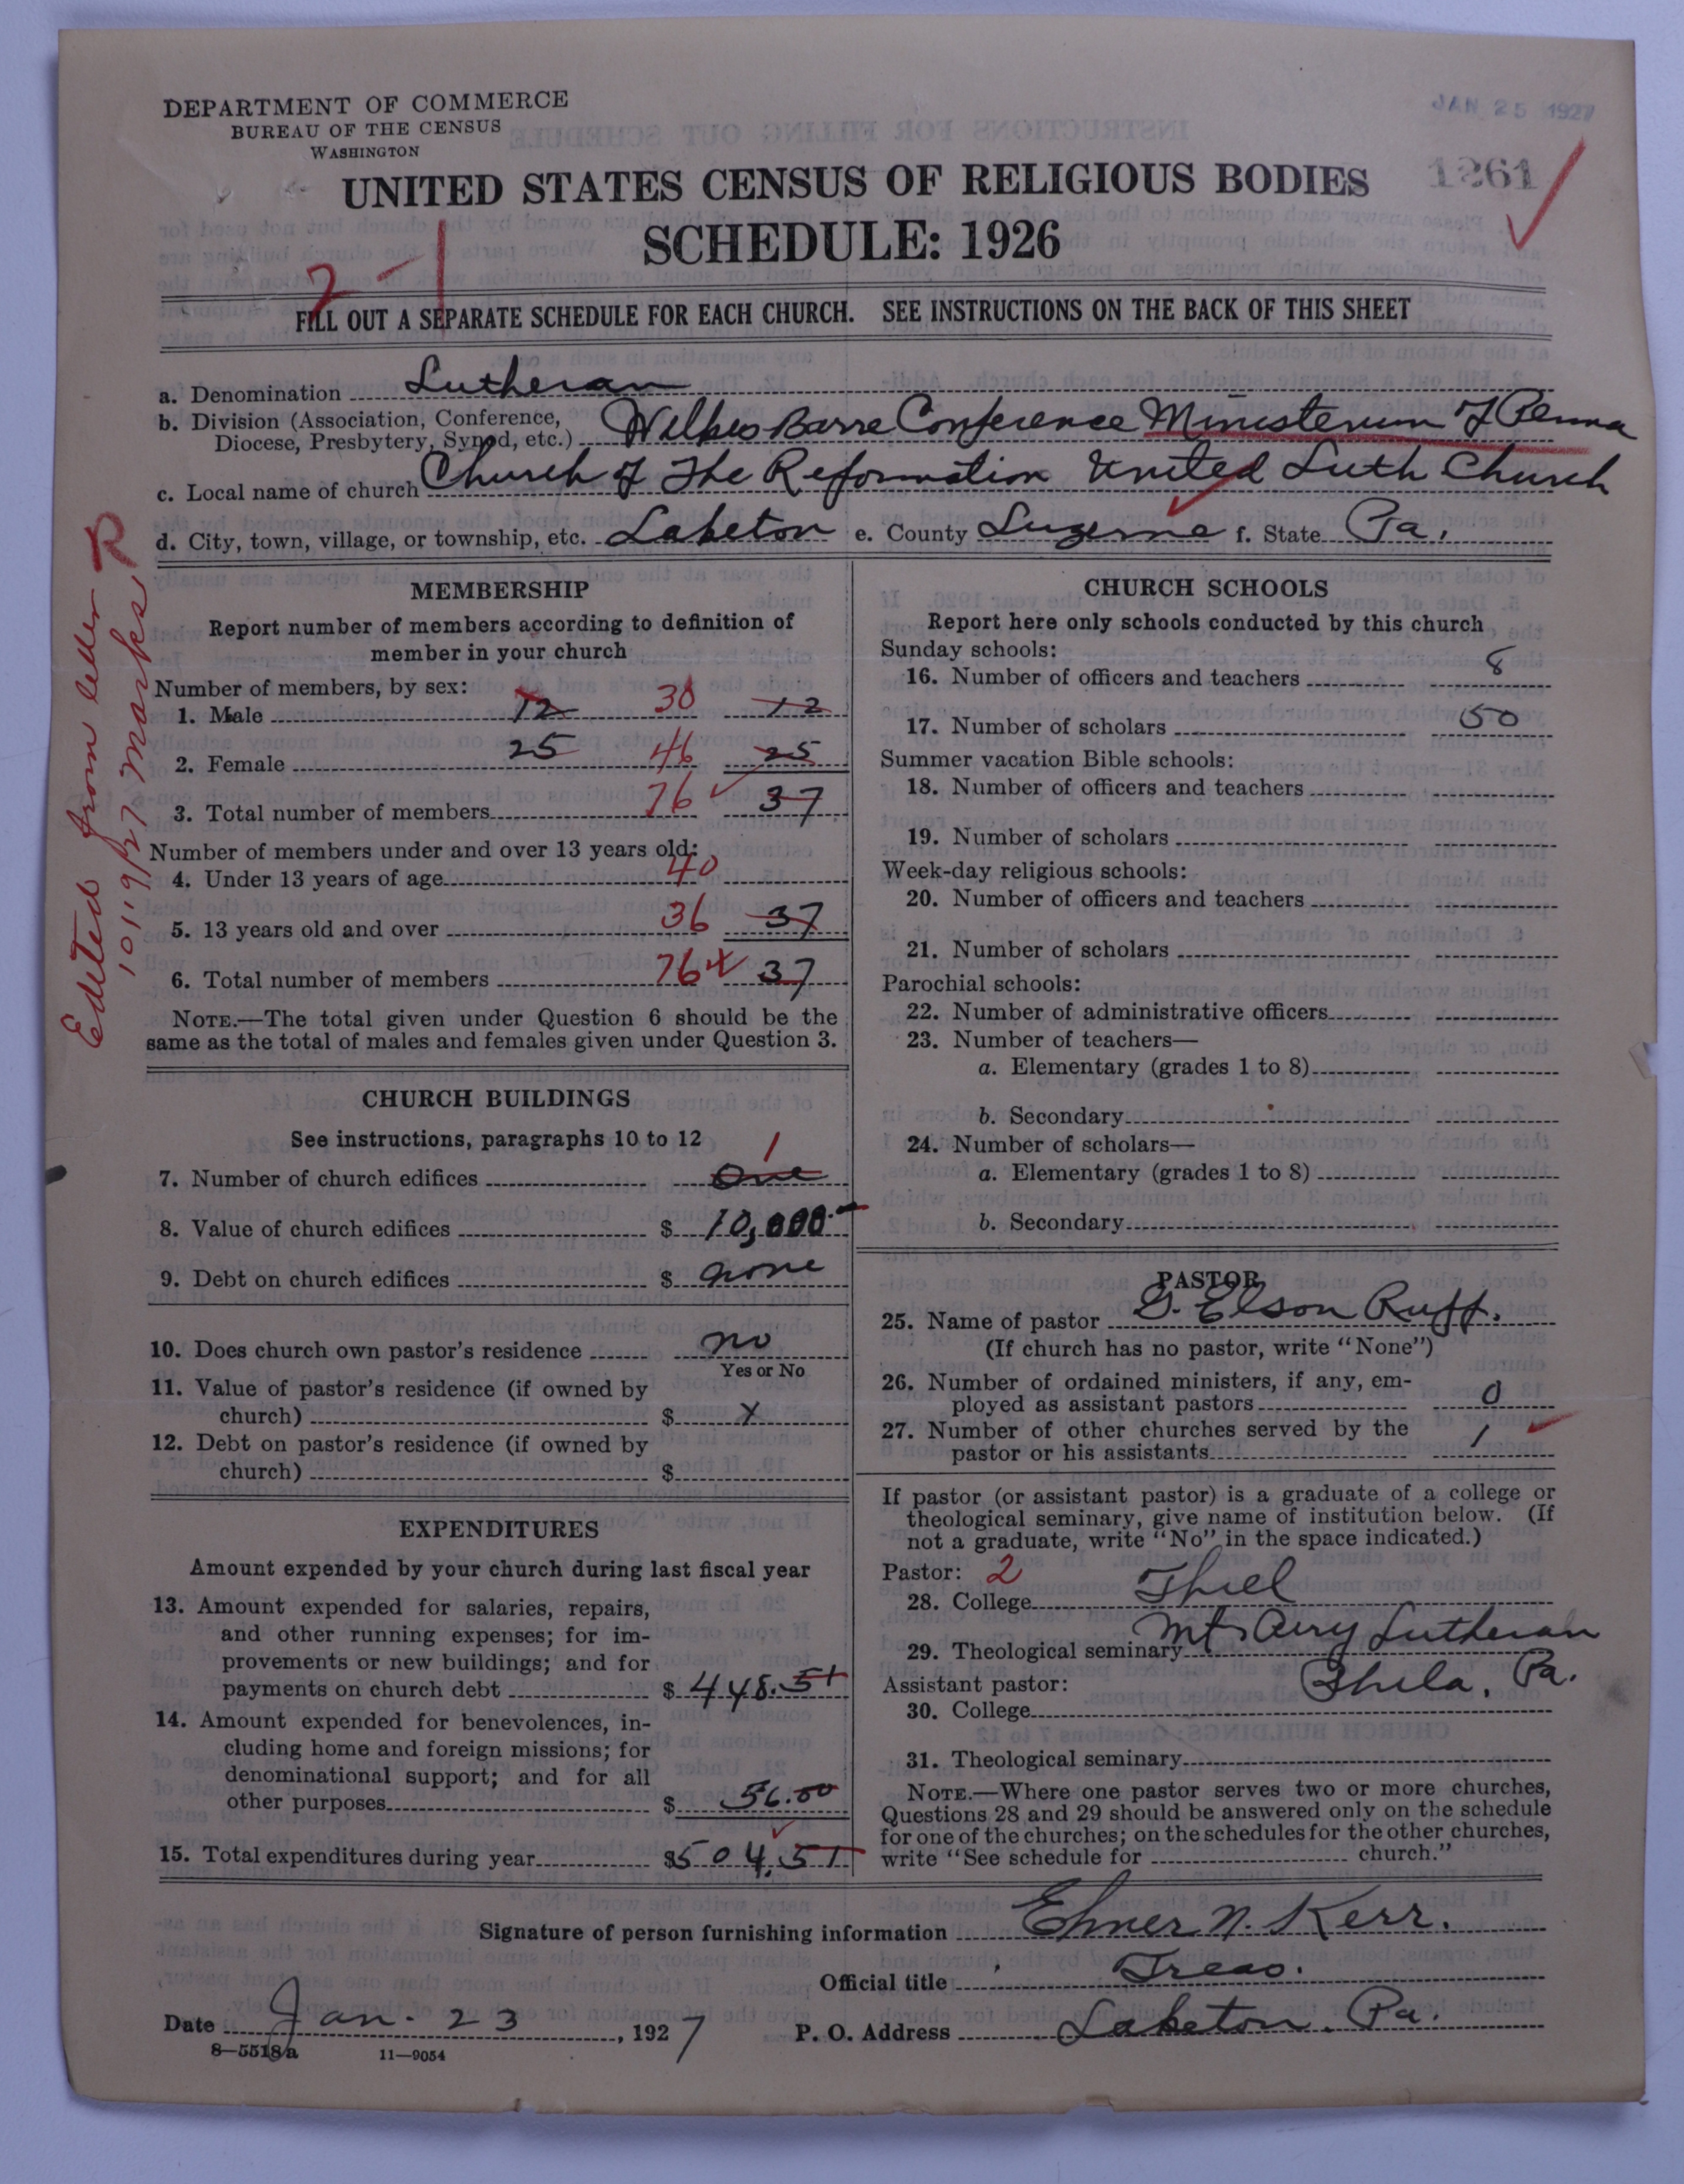 DEPARTMENT OF COMMERCE
BUREAU OF THE CENSUS
WASHINGTON
JAN 25 1927
1261
UNITED STATES CENSUS OF RELIGIOUS BODIES
SCHEDULE: 1926
2-1
FILL OUT A SEPARATE SCHEDULE FOR EACH CHURCH. SEE INSTRUCTIONS ON THE BACK OF THIS SHEET
a. Denomination Lutheran
b. Division (Association, Conference,
Diocese, Presbytery, Synod, etc.) Wilkes Barre Conference Ministerium of Penna
c. Local name of church Church of The Reformation United Luth Church
d. City, town, village, or township, etc. Laketon e. County Luzerne f. State Pa.
Edited from letter R
10/19/27 Marks
MEMBERSHIP
Report number of members according to definition of
member in your church
Number of members, by sex:
1. Male 12 30 12
2. Female 25 46 25
3. Total number of members 76 37
Number of members under and over 13 years old:
4. Under 13 years of age 40
5. 13 years old and over 36 37
6. Total number of members 76 37
NOTE.—The total given under Question 6 should be the
same as the total of males and females given under Question 3.
CHURCH BUILDINGS
See instructions, paragraphs 10 to 12
7. Number of church edifices One 1
8. Value of church edifices $ 10,000.-
9. Debt on church edifices $ none
10. Does church own pastor's residence no
Yes or No
11. Value of pastor's residence (if owned by
church) $ X
12. Debt on pastor's residence (if owned by
church) $
EXPENDITURES
Amount expended by your church during last fiscal year
13. Amount expended for salaries, repairs,
and other running expenses; for im-
provements or new buildings; and for
payments on church debt $ 448.51
14. Amount expended for benevolences, in-
cluding home and foreign missions; for
denominational support; and for all
other purposes $ 56.00
15. Total expenditures during year $504.51
CHURCH SCHOOLS
Report here only schools conducted by this church
Sunday schools:
16. Number of officers and teachers 8
17. Number of scholars 50
Summer vacation Bible schools:
18. Number of officers and teachers
19. Number of scholars
Week-day religious schools:
20. Number of officers and teachers
21. Number of scholars
Parochial schools:
22. Number of administrative officers
23. Number of teachers—
a. Elementary (grades 1 to 8)
b. Secondary
24. Number of scholars—
a. Elementary (grades 1 to 8)
b. Secondary
PASTOR
25. Name of pastor G. Elson Ruff.
(If church has no pastor, write "None")
26. Number of ordained ministers, if any, em-
ployed as assistant pastors 0
27. Number of other churches served by the
pastor or his assistants 1
If pastor (or assistant pastor) is a graduate of a college or
theological seminary, give name of institution below. (If
not a graduate, write "No" in the space indicated.)
Pastor: 2
28. College Thiel
29. Theological seminary Mt. Airy Lutheran
Assistant pastor: Phila. Pa.
30. College
31. Theological seminary
NOTE.—Where one pastor serves two or more churches,
Questions 28 and 29 should be answered only on the schedule
for one of the churches; on the schedules for the other churches,
write "See schedule for church."
Signature of person furnishing information Elmer N. Kerr.
Official title Treas.
Date Jan. 23, 1927 P. O. Address Laketon. Pa.
8—5518a 11—9054